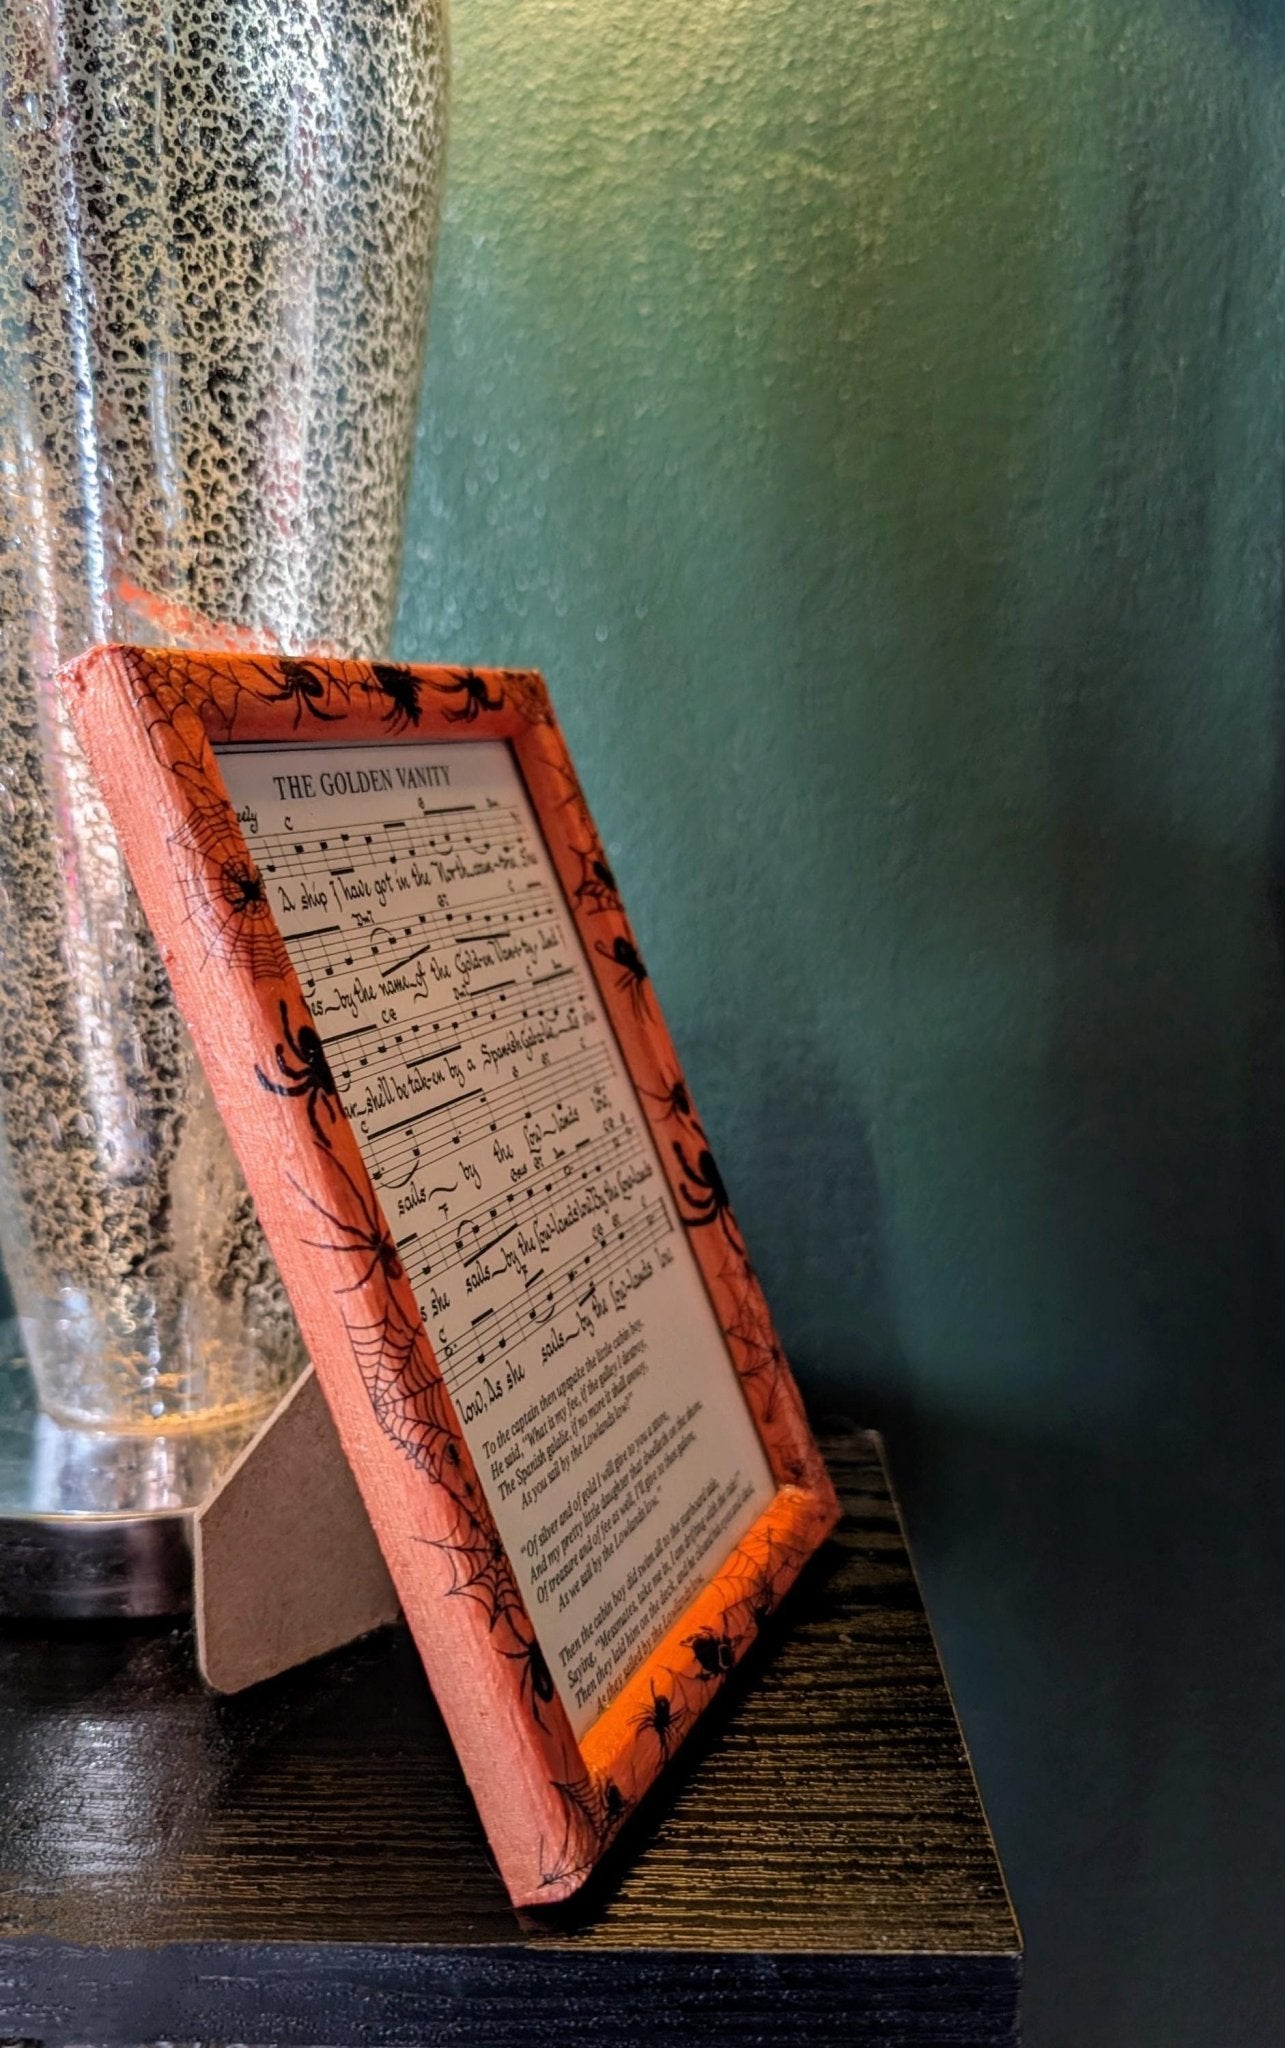 THE GOLDEN VANITY
eely C G
A ship I have got in the North_coun-thu, She
Dm7 G7 C
es_by the name_of the Gold-en Van-i-ty. And I
C/E Dm7 C
ar_she'll be tak-en by a Span-ish Gal-a-lie,_As she
C G G7 C
sails_ by the Low-lands low,
F
s she sails_by the Low-lands low, By the Low-lands
C F C/G G7 C
low, As she sails_by the Low-lands low.
To the captain then upspake the little cabin boy,
He said, "What is my fee, if the galley I destroy,
The Spanish galalie, if no more it shall annoy,
As you sail by the Lowlands low?"
"Of silver and of gold I will give to you a store,
And my pretty little daughter that dwelleth on the shore,
Of treasure and of fee as well, I'll give to thee galore,
As we sail by the Lowlands low."
Then the cabin boy did swim all to the starboard side,
Saying, "Messmates, take me in, I am drifting with the tide!"
Then they laid him on the deck, and he closed his eyes and died,
As they sailed by the Lowlands low.